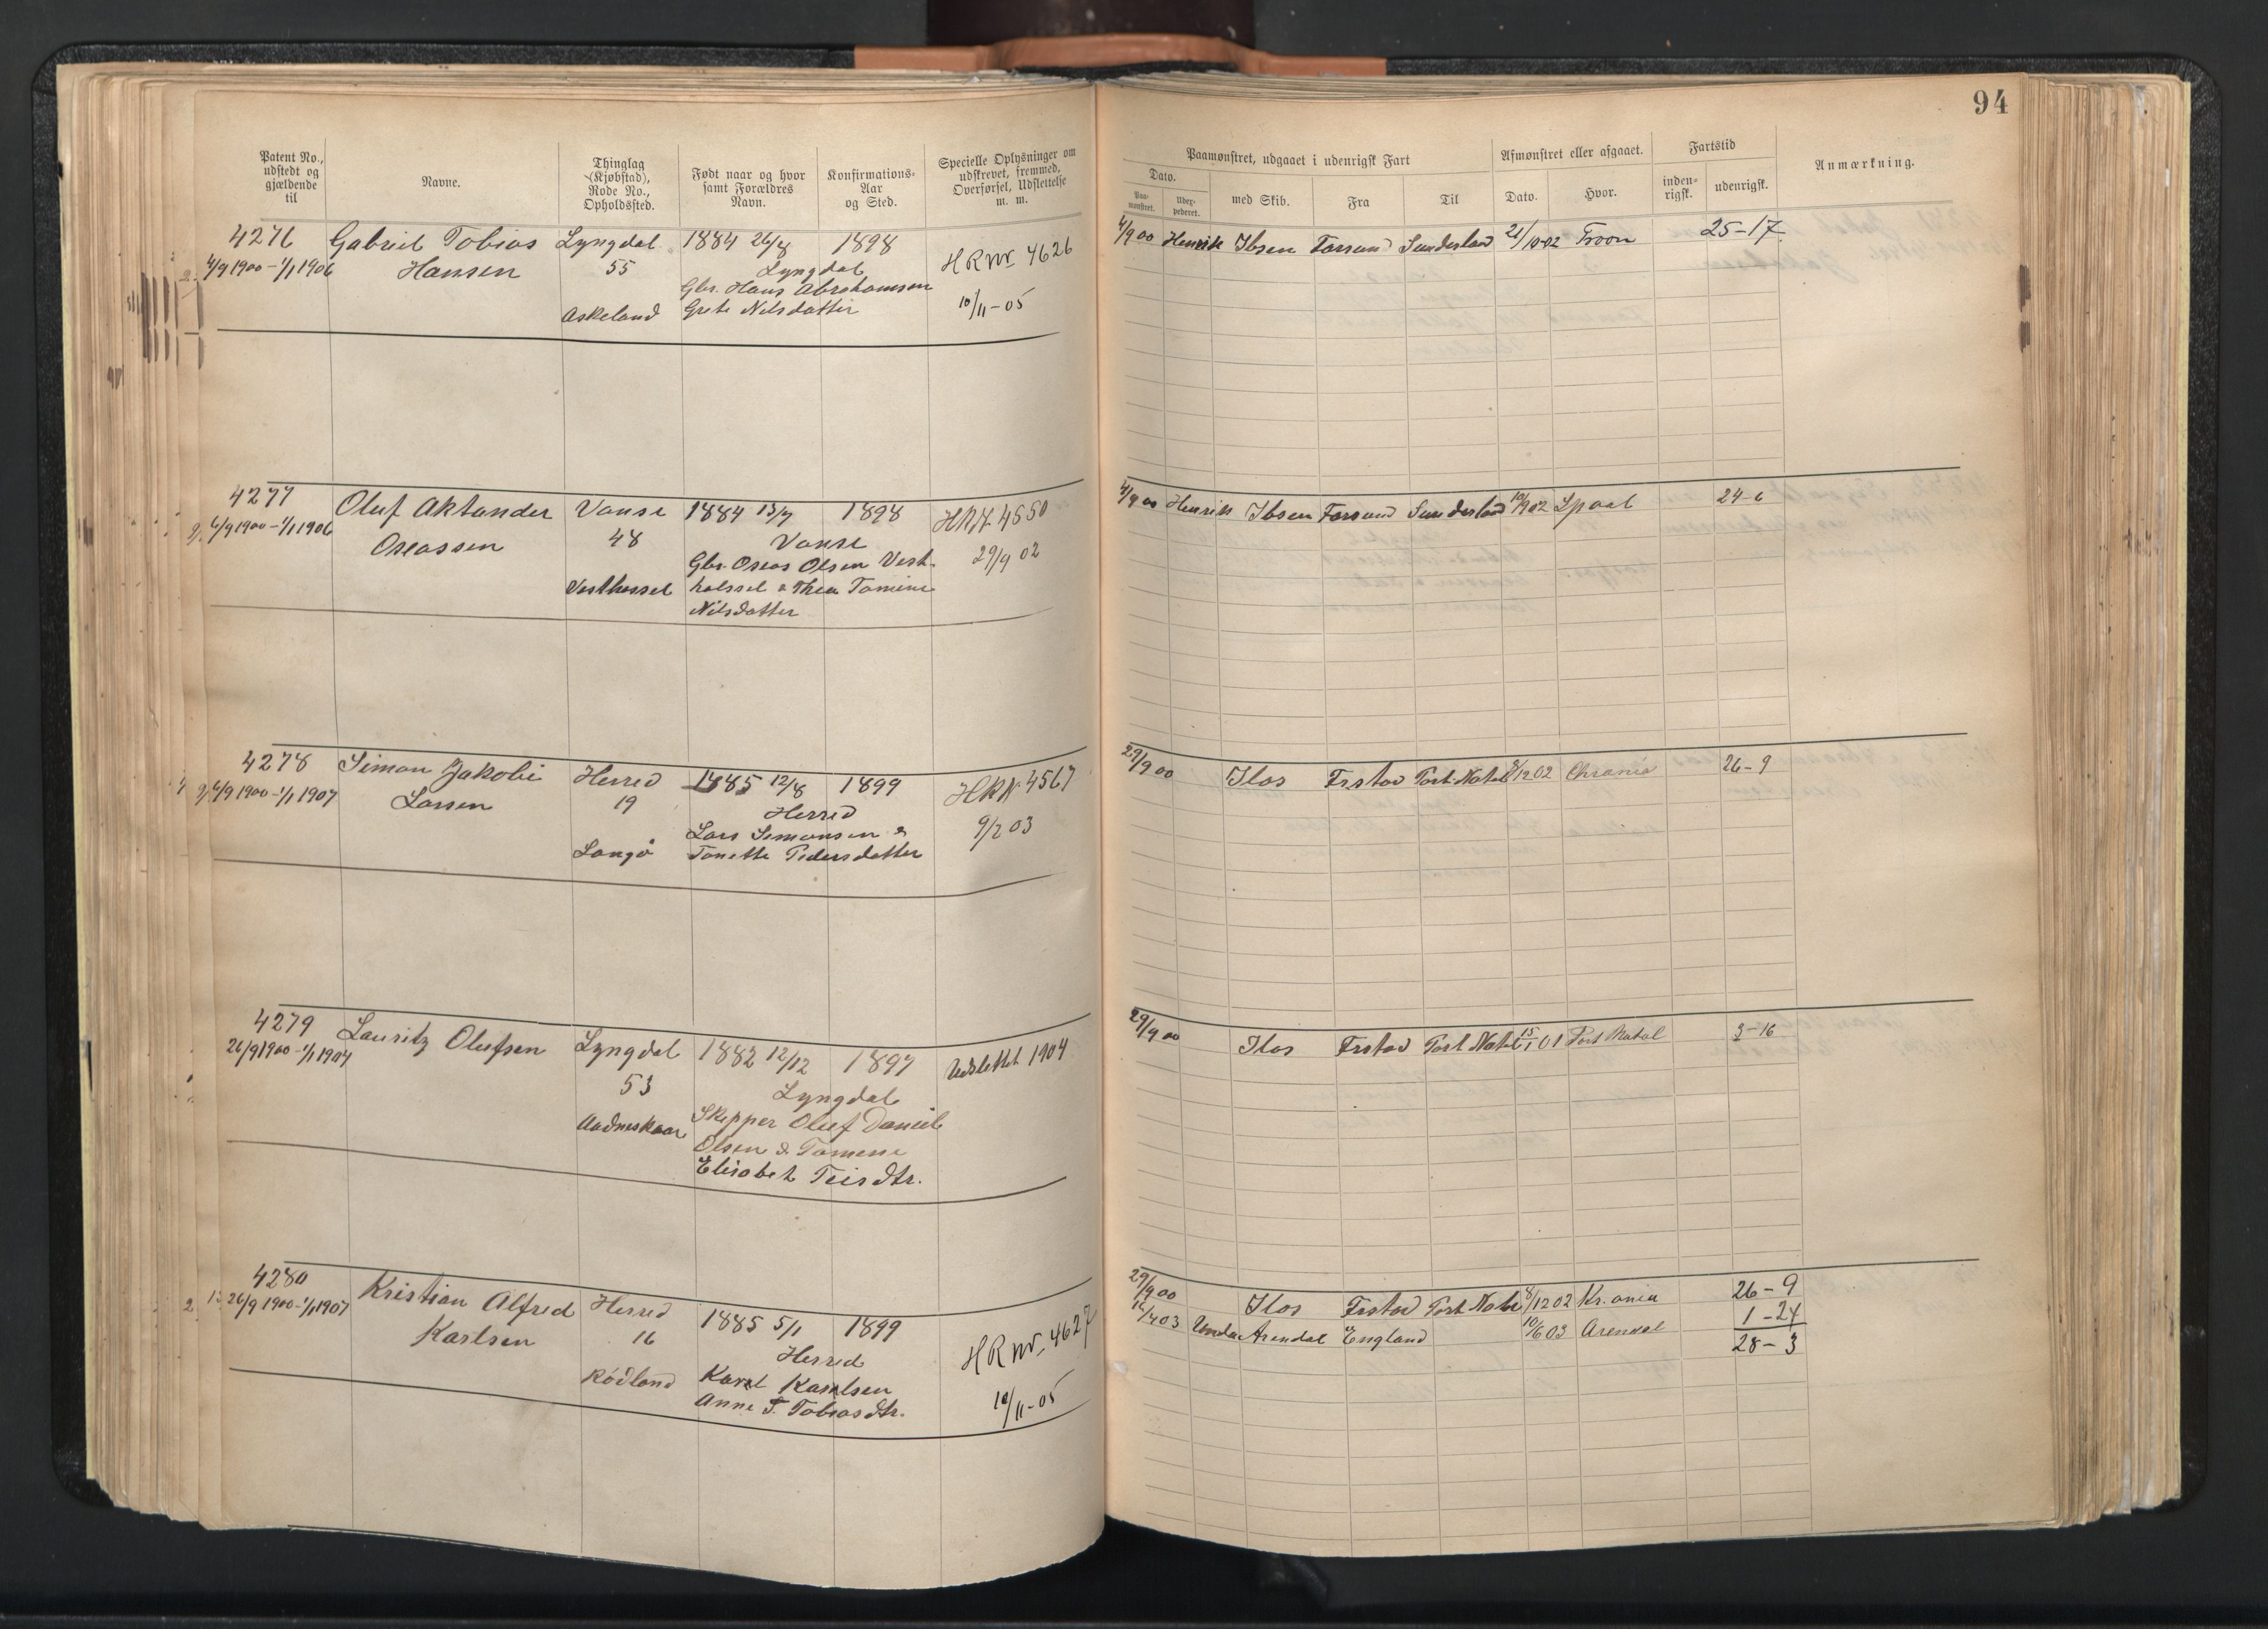 94
Patent No., udstedt og gjældende til
Navne.
Thinglag (Kjøbstad), Rode No., Opholdssted.
Født naar og hvor samt Forældres Navn.
Konfirmations-Aar og Sted.
Specielle Oplysninger om udskrevet, fremmed, Overførsel, Udslettelse m. m.
Paamønstret, udgaaet i udenrigsk Fart
Afmønstret eller afgaaet.
Fartstid
Anmærkning.
Dato.
Paa-mønstret.
Uder-pederet.
med Skib.
Fra
Til
Dato.
Hvor.
inden-rigsk.
udenrigsk.
4276 Gabriel Tobias Lyngdal 1884 26/8 1898
4/9 1900 - 1/1 1906 Hansen 55 Lyngdal HR nr. 4626
Gbr. Hans Abrahamsen
Askeland Grete Nilsdatter 10/11-05
4/9 00 Henrik Ibsen Farsund Sunderland 21/10-02 Troon 25-17
4277 Oluf Aktander Vanse 1884 13/7 1898 HRN 4550
4/9 1900 - 1/1 1906 Oseassen 48 Vanse 29/9 02
Gbr. Oseas Olsen Vest-
Vesthassel halssel & Thea Tomine
Nilsdatter
4/9 00 Henrik Ibsen Farsund Sunderland 10/9 02 24-6
4278 Simon Jakobi Herred 1885 12/8 1899 HRN 4567
4/9 1900 - 1/1 1907 Larsen 19 Herred 9/2 03
Lars Simonsen &
Langø Tonette Pedersdatter
29/9 00 Ilos Frstad Port Natal 8/12 02 Chrania 26-9
4279 Lauritz Olufsen Lyngdal 1882 12/12 1897 Udslettet 1904
26/9 1900 - 1/1 1904 53 Lyngdal
Aadneskaar Skipper Oluf Daniel
Olsen & Tomene
Elisabet Teisdtr.
29/9 00 Ilos Frstad Port Natal 15/1 01 Port Natal 3-16
4280 Kristian Alfred Herred 1885 5/1 1899 HR nr. 4627
26/9 1900 - 1/1 1907 Karlsen 16 Herred
Rødland Karl Karlsen
Anne T. Tobiasdtr. 10/11-05
29/9 00 Ilos Frstad Port Natal 8/12 02 Kr.ania 26-9
16/4 03 Arendal England 10/6 03 Arendal 1-24
28-3